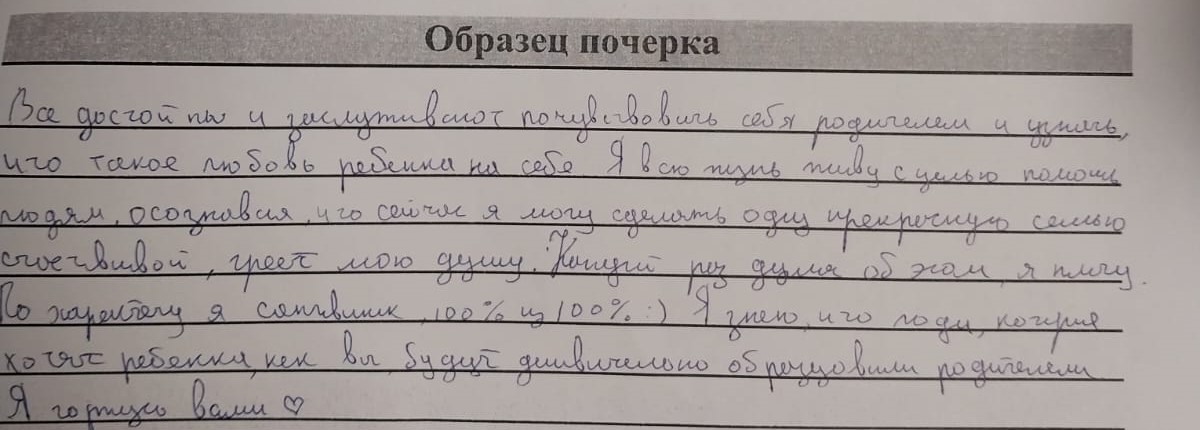 Образец почерка
Все достойны и заслуживают почувствовать себя родителем и узнать,
что такое любовь ребенка на себе Я всю жизнь живу с целью помочь
людям, осознавая, что сейчас я могу сделать одну прекрасную семью
счастливой, греет мою душу. Каждый раз думая об этом, я плачу.
По характеру я 100% из 100% :) Я знаю, что люди, которые
хотят ребенка, как вы, будут действительно образцовыми родителями
Я горжусь вами ♡